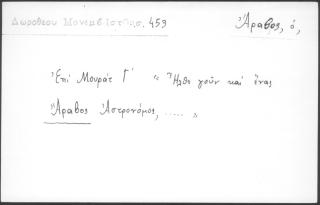 Δωροθεου Μονεμβ ιστ/ασ. 453
Ἄραβος, ὁ,
Ἐπί Μουράτ Γ΄ « Ἦλθε γοῦν καί ἕνας
Ἄραβος Ἀστρονόμος, ..... »